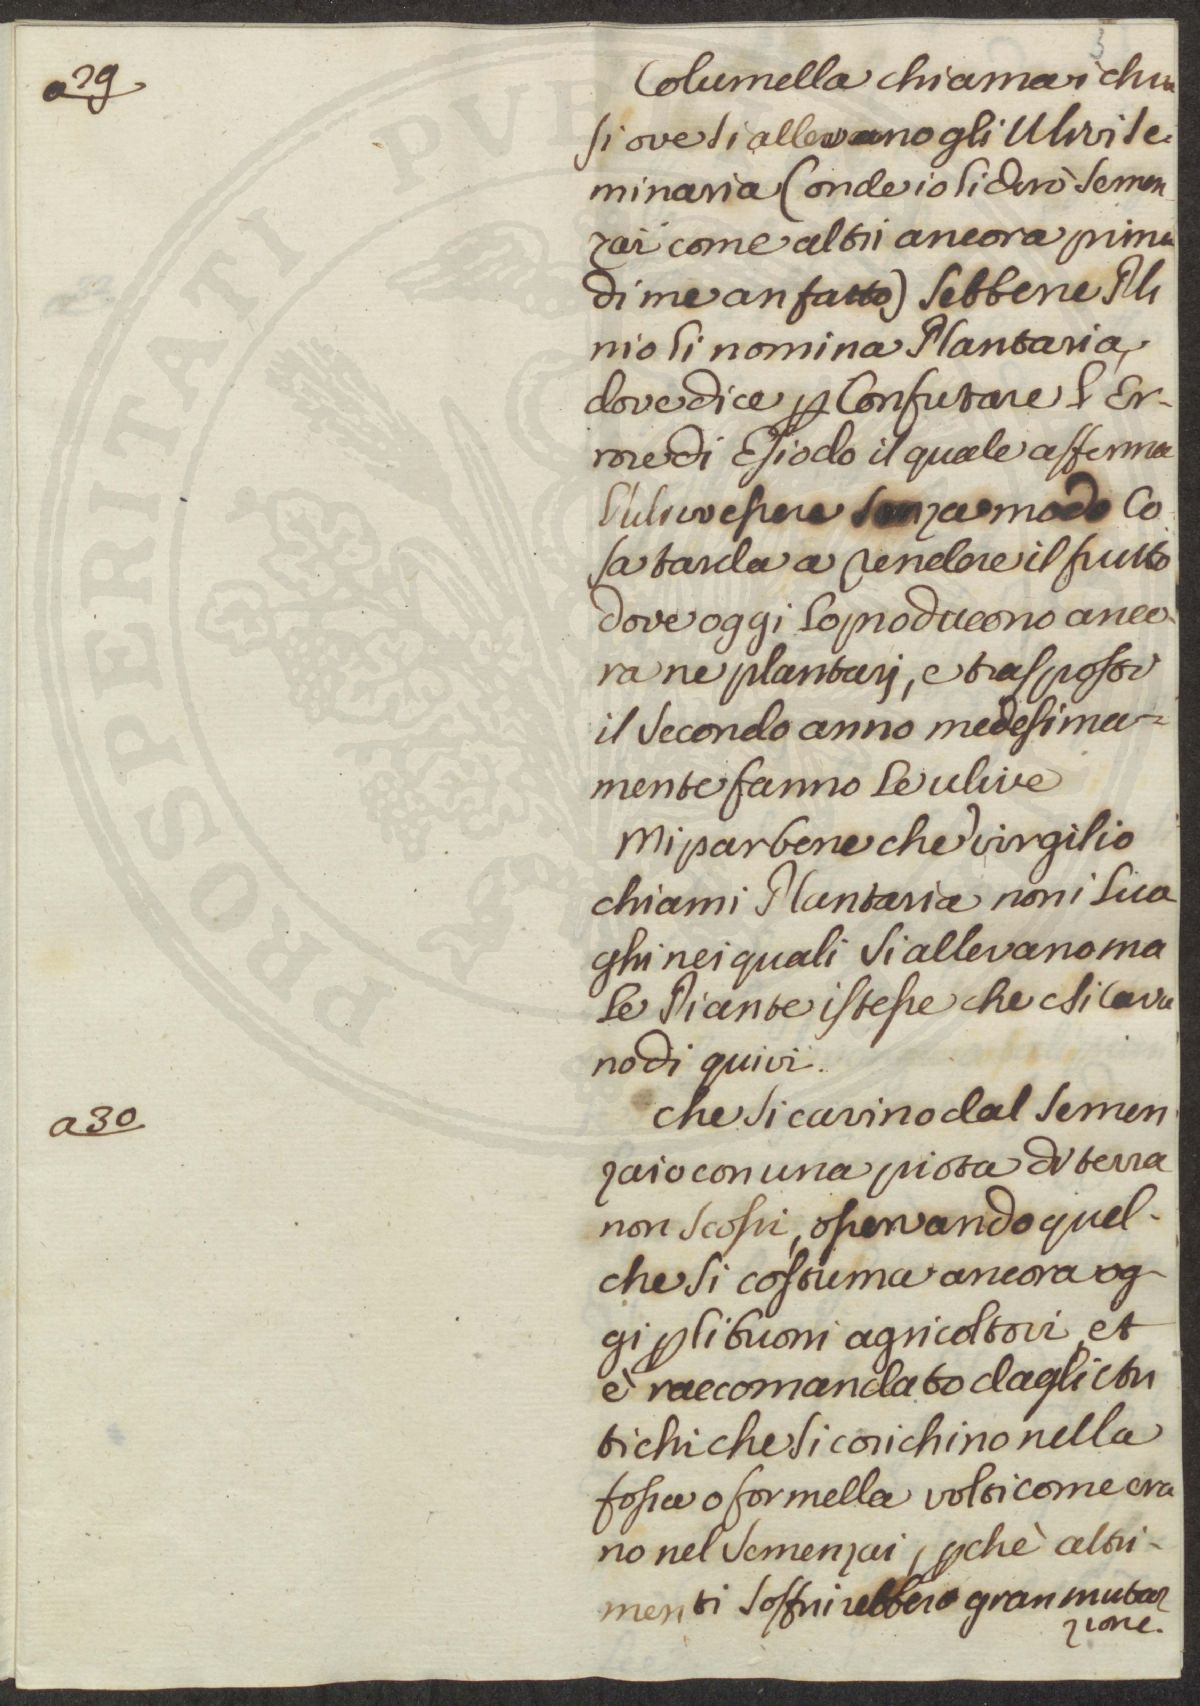 3
a 29
Columella chiama i chiu
si ove si allevano gli Ulivi Se-
minaria (onde io li dirò Semen
zai come altri ancora prima
di me an fatto) Sebbene Pli
nio li nomina Plantaria,
dove dice p Confutare l'Er-
rore di Esiodo il quale afferma
l'ulivo essere senza modo Co
sa tarda a rendere il frutto
dove oggi lo producono anco-
ra ne plantarj, e trasposti
il secondo anno medesima-
mente fanno le ulive
Mi par bene che virgilio
chiami Plantaria non i Luo
ghi nei quali si allevano ma
le Piante istesse che si cava
no di quivi.
a 30
che si cavino dal Semen
zaio con una piota di terra
non scossi, osservando quel-
che si costuma ancora og-
gi p li buoni agricoltori, et
è raccomandato dagli An
tichi che si corichino nella
fossa o formella volti come era
no nel Semenzai, pchè altri-
menti soffrirebbero gran muta
zione.
PROSPERITATI PUB